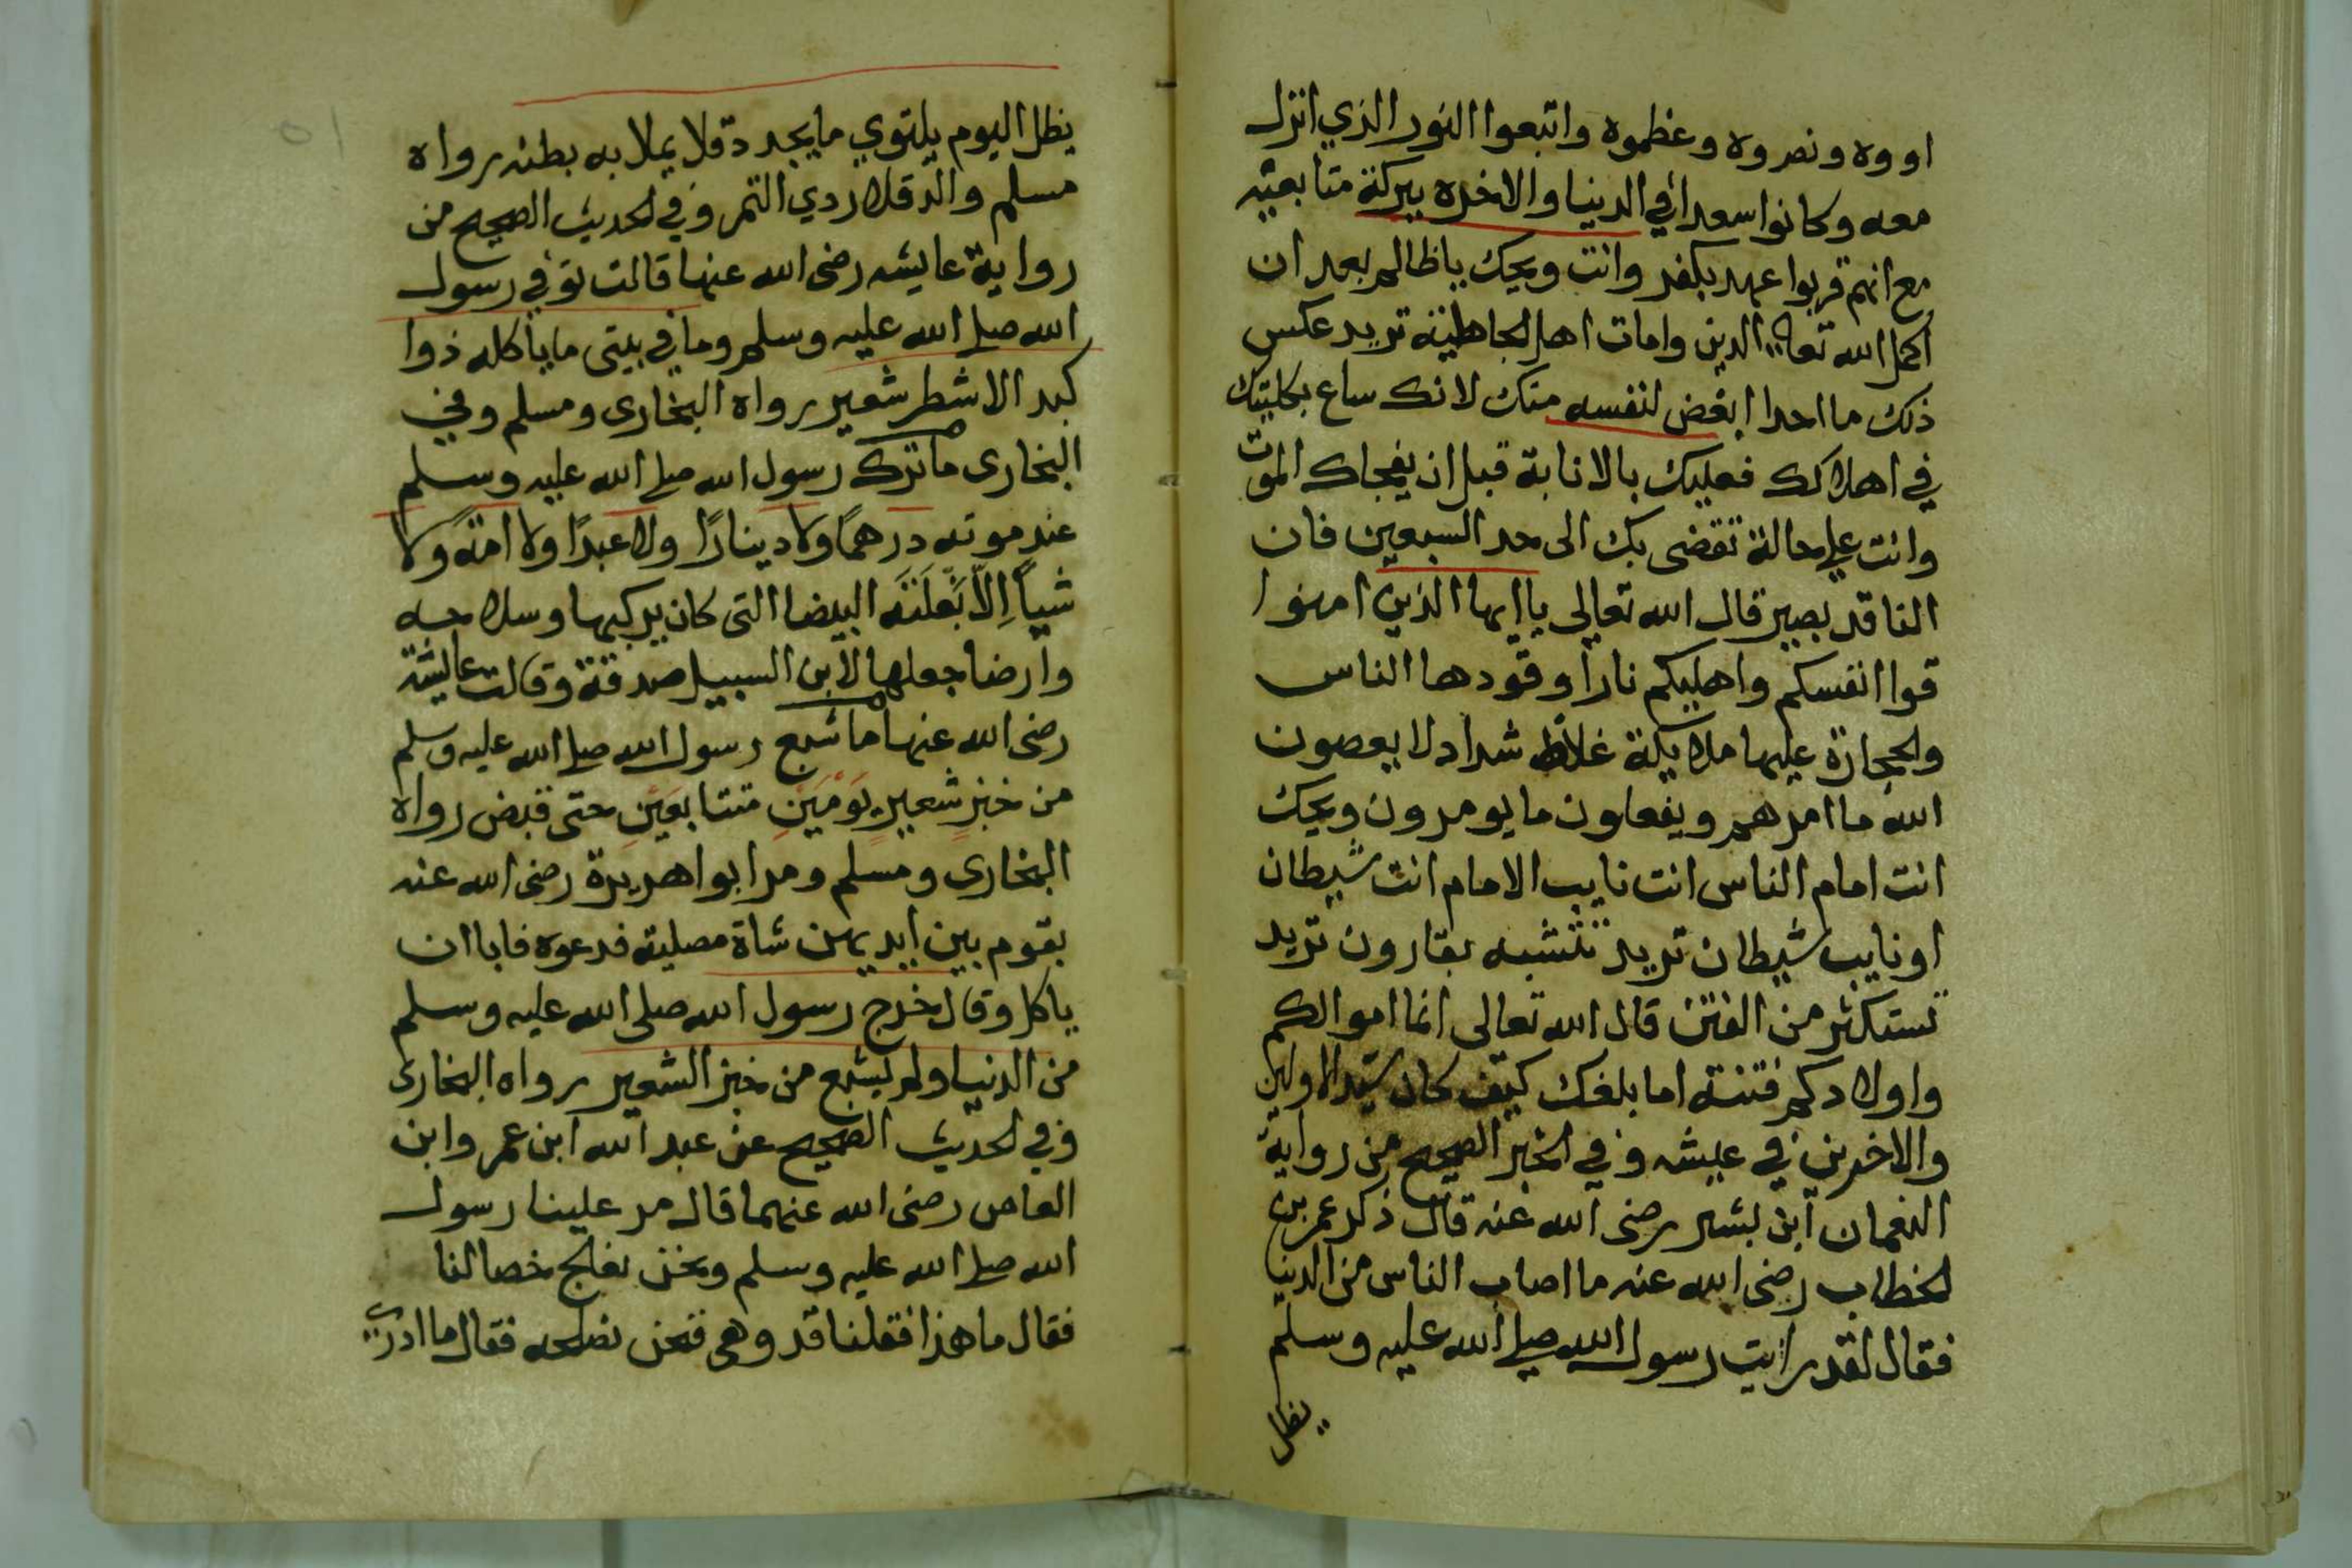 اووه ونصروه وعظموه واتبعوا النور الذي انزل
معه وكانوا سعدا في الدنيا والاخره ببركة متابعته
مع انهم قربوا عهد بكفر وانت ويحك ياظالم بعد ان
اكمل الله تعالى الدين وامات اهل الجاهلية تريد عكس
ذلك ما احدا ابغض لنفسه منك لانك ساع بكليتك
في اهلاكك فعليك بالانابة قبل ان يفجاك الموت
وانت على حالة تقضى بك الى حد السبعين فان
الناقد بصير قال الله تعالى ياايها الذين امنوا
قوا انفسكم واهليكم نارا وقودها الناس
والحجارة عليها ملايكة غلاظ شداد لا يعصون
الله ما امرهم ويفعلون ما يومرون ويحك
انت امام الناس انت نايب الامام انت شيطان
او نايب شيطان تريد تتشبه بقارون تريد
تستكثر من الفتن قال الله تعالى انما اموالكم
واولادكم فتنة اما بلغك كيف كان سيد الاولين
والاخرين في عيشه وفي الخبر الصحيح من رواية
النعمان ابن بشير رضى الله عنه قال ذكر عمر بن
الخطاب رضى الله عنه ما اصاب الناس من الدنيا
فقال لقد رايت رسول الله صلى الله عليه وسلم
يظل
يظل اليوم يلتوي ما يجد دقلا يملا به بطنه رواه
مسلم والدقل ردي التمر وفي الحديث الصحيح من
رواية عايشه رضى الله عنها قالت توفي رسول
الله صلى الله عليه وسلم وما في بيتى ما ياكله ذوا
كبد الا شطر شعير رواه البخارى ومسلم وفي
البخارى ما ترك رسول الله صلى الله عليه وسلم
عند موته درهمًا ولا دينارًا ولا عبدًا ولا امة ولا
شياً اِلاّ بَغلَتَه البيضا التى كان يركبها وسلاحه
وارضا جعلها لابن السبيل صدقة وقالت عايشة
رضى الله عنها ما شبع رسول الله صلى الله عليه وسلم
من خبز شعير يَوْمَيْنِ متتابعَيْنِ حتى قبض رواه
البخارى ومسلم ومر ابوا هريرة رضى الله عنه
بقوم بين ايديهن شاة مصلية فدعوه فابا ان
ياكل وقال خرج رسول الله صلى الله عليه وسلم
من الدنيا ولم يشبع من خبز الشعير رواه البخارى
وفي الحديث الصحيح عن عبد الله ابن عمر وابن
العاص رضى الله عنهما قال مر علينا رسول
الله صلى الله عليه وسلم ونحن نعالج خصا لنا
فقال ما هذا فقلنا قد وهى فنحن نصلحه فقال ما ادرى